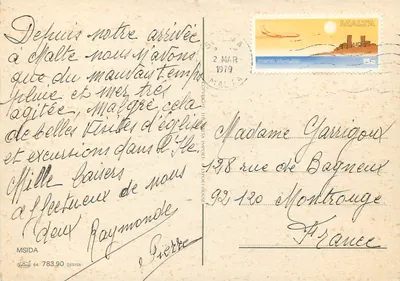 Depuis notre arrivée
à Malte nous n'avons
que du mauvais temps
pluie et mer très
agitée, malgré cela
de belles visites d'églises
et excursions dans l'Ile
Mille baisers
affectueux de nous
deux Raymonde
Pierre
MSIDA
783,90
2 MAR
1979
MALTA
5c
Madame Garrigoux
128 rue de Bagneux
92120 Montrouge
France